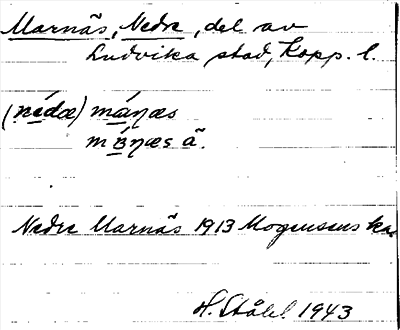 Marnäs, Nedre, del av
Ludvika stad, Kopp. l.
(nedæ) máŋæs
máŋæs ä.
Nedre Marnäs 1913 Mogensens ka
H. Ståhl 1943